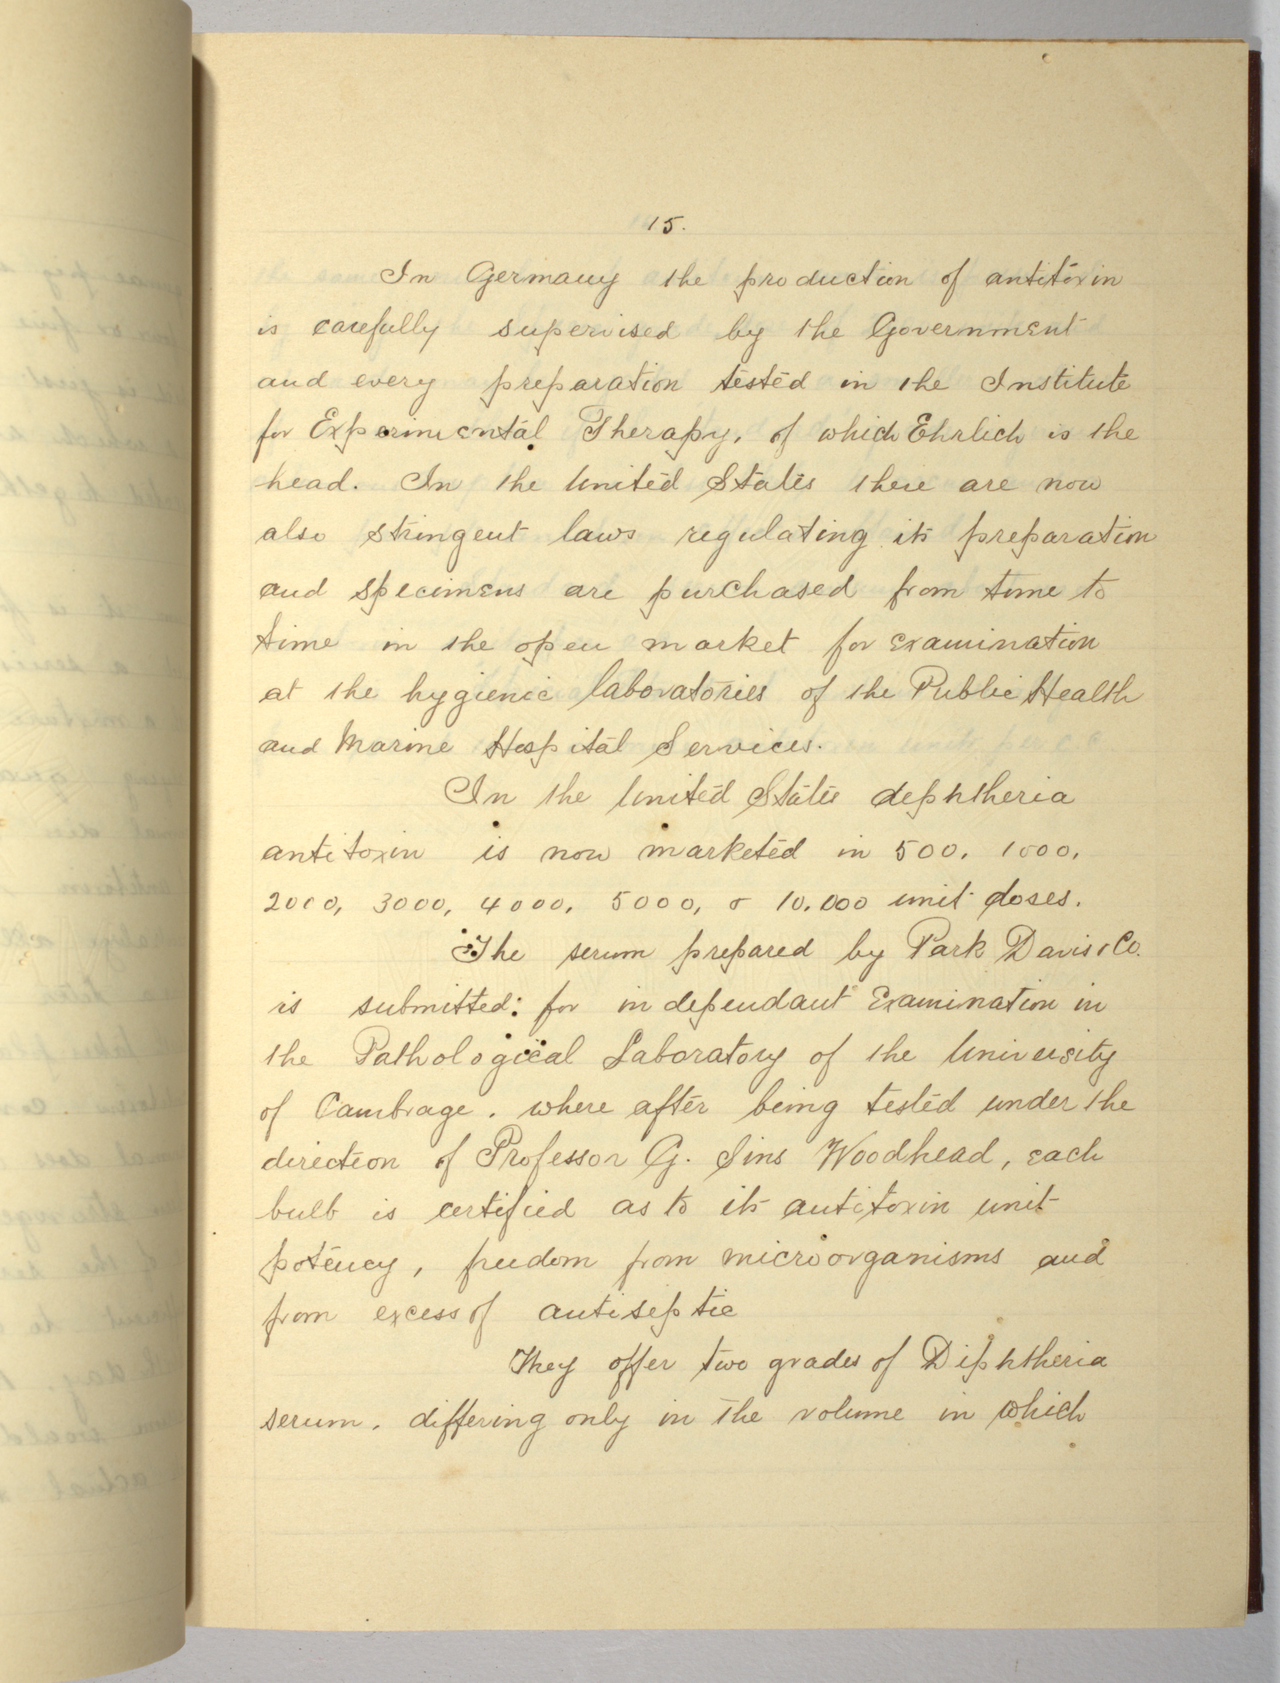 15.
In Germany the production of antitoxin
is carefully supervised by the Government
and every preparation tested in the Institute
for Experimental Therapy, of which Ehrlich is the
head. In the United States there are now
also stringent laws regulating its preparation
and specimens are purchased from time to
time in the open market for examination
at the hygienic laboratories of the Public Health
and Marine Hospital Services.
In the United States dephtheria
antitoxin is now marketed in 500, 1000,
2000, 3000, 4000, 5000, & 10,000 unit doses.
The serum prepared by Park Davis & Co.
is submitted: for independant Examination in
the Pathological Laboratory of the University
of Cambrage. where after being tested under the
direction of Professor G. Sins Woodhead, each
bulb is certified as to its antitoxin unit
potency, freedom from microorganisms and
from excess of antiseptic
They offer two grades of Diphtheria
serum. differing only in the volume in which